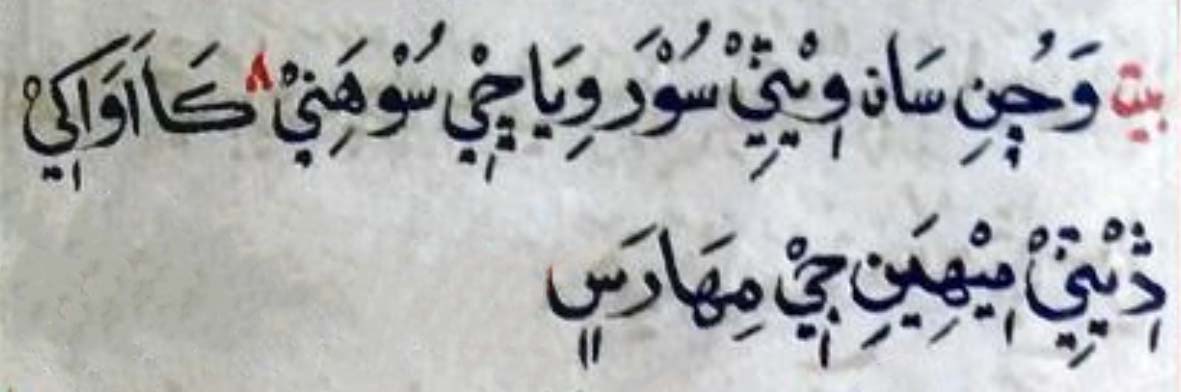 بيت وَڃُنِ سَان وِيْٺِيْ سُوْرَ وِيَا چِيْ سُوْهَنِيْ ۸ كَا اَوَاكِيْ
ڏِيْٺِيْ مِيْهِيَنِ جِيْ مِهَارَسٍ